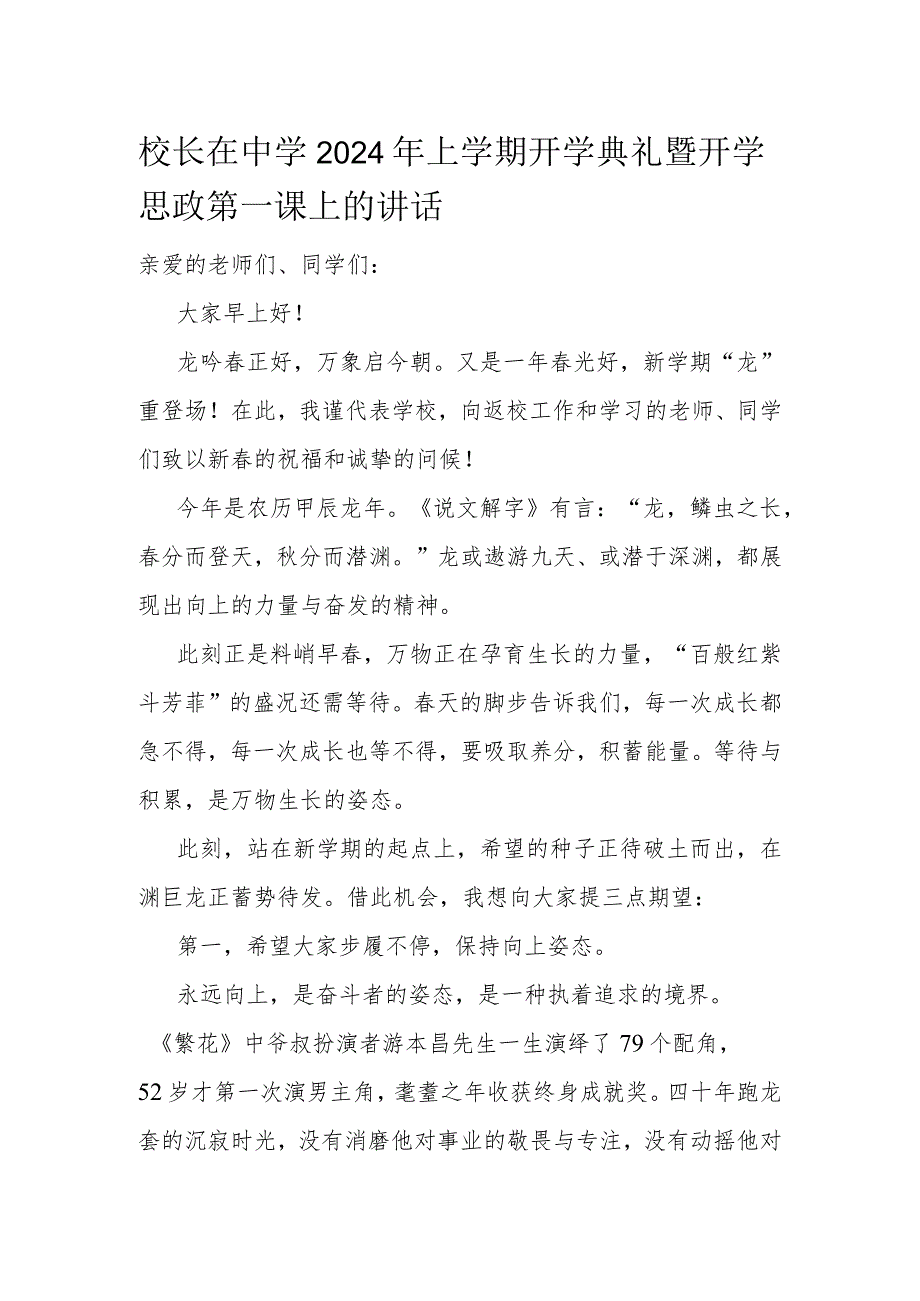 校长在中学2024年上学期开学典礼暨开学
思政第一课上的讲话
亲爱的老师们、同学们：
大家早上好！
龙吟春正好，万象启今朝。又是一年春光好，新学期“龙”
重登场！在此，我谨代表学校，向返校工作和学习的老师、同学
们致以新春的祝福和诚挚的问候！
今年是农历甲辰龙年。《说文解字》有言：“龙，鳞虫之长，
春分而登天，秋分而潜渊。”龙或遨游九天、或潜于深渊，都展
现出向上的力量与奋发的精神。
此刻正是料峭早春，万物正在孕育生长的力量，“百般红紫
斗芳菲”的盛况还需等待。春天的脚步告诉我们，每一次成长都
急不得，每一次成长也等不得，要吸取养分，积蓄能量。等待与
积累，是万物生长的姿态。
此刻，站在新学期的起点上，希望的种子正待破土而出，在
渊巨龙正蓄势待发。借此机会，我想向大家提三点期望：
第一，希望大家步履不停，保持向上姿态。
永远向上，是奋斗者的姿态，是一种执着追求的境界。
《繁花》中爷叔扮演者游本昌先生一生演绎了79个配角，
52岁才第一次演男主角，耄耋之年收获终身成就奖。四十年跑龙
套的沉寂时光，没有消磨他对事业的敬畏与专注，没有动摇他对